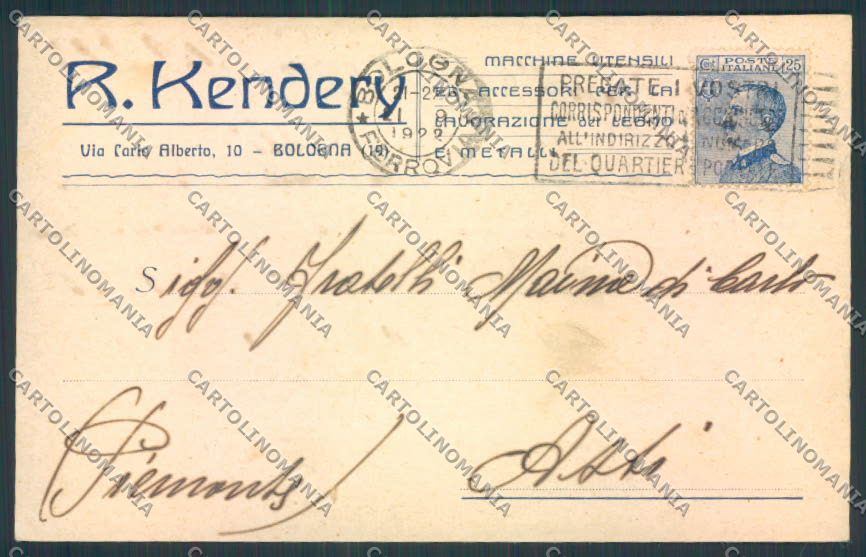 R. Kendery
Via Carlo Alberto, 10 - BOLOGNA (19)
MACCHINE UTENSILI
ED ACCESSORI PER LA
LAVORAZIONE DEL LEGNO
E METALLI
BOLOGNA
21-22
1922
FERROVIA
PREGATE I VOSTRI
CORRISPONDENTI
ALL'INDIRIZZO
DEL QUARTIERE
POSTE ITALIANE
Ct. 25
Sigg. Fratelli Maina di Carlo
Asti
(Piemonte)
CARTOLINOMANIA